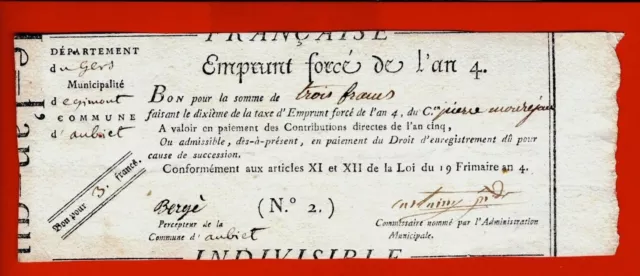 FRANÇAISE
DÉPARTEMENT
du Gers
Municipalité
d'egimont
COMMUNE
d'aubiet
Bon pour 3. francs.
Emprunt forcé de l'an 4.
BON pour la somme de trois francs
faisant le dixième de la taxe d'Emprunt forcé de l'an 4, du C.en pierre
A valoir en paiement des Contributions directes de l'an cinq,
Ou admissible, dès-à-présent, en paiement du Droit d'enregistrement dû pour
cause de succession.
Conformément aux articles XI et XII de la Loi du 19 Frimaire an 4.
Bergè
(N.° 2.)
Percepteur de la
Commune d'aubiet
Commissaire nommé par l'Administration
Municipale.
INDIVISIBLE